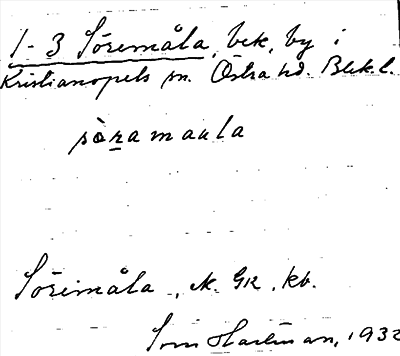 1-3 Söremåla, bek, by i
Kristianopels sn. Östra hd. Blek.l.
sòramaula
Söremåla, GK, kb.
Hartman, 1932